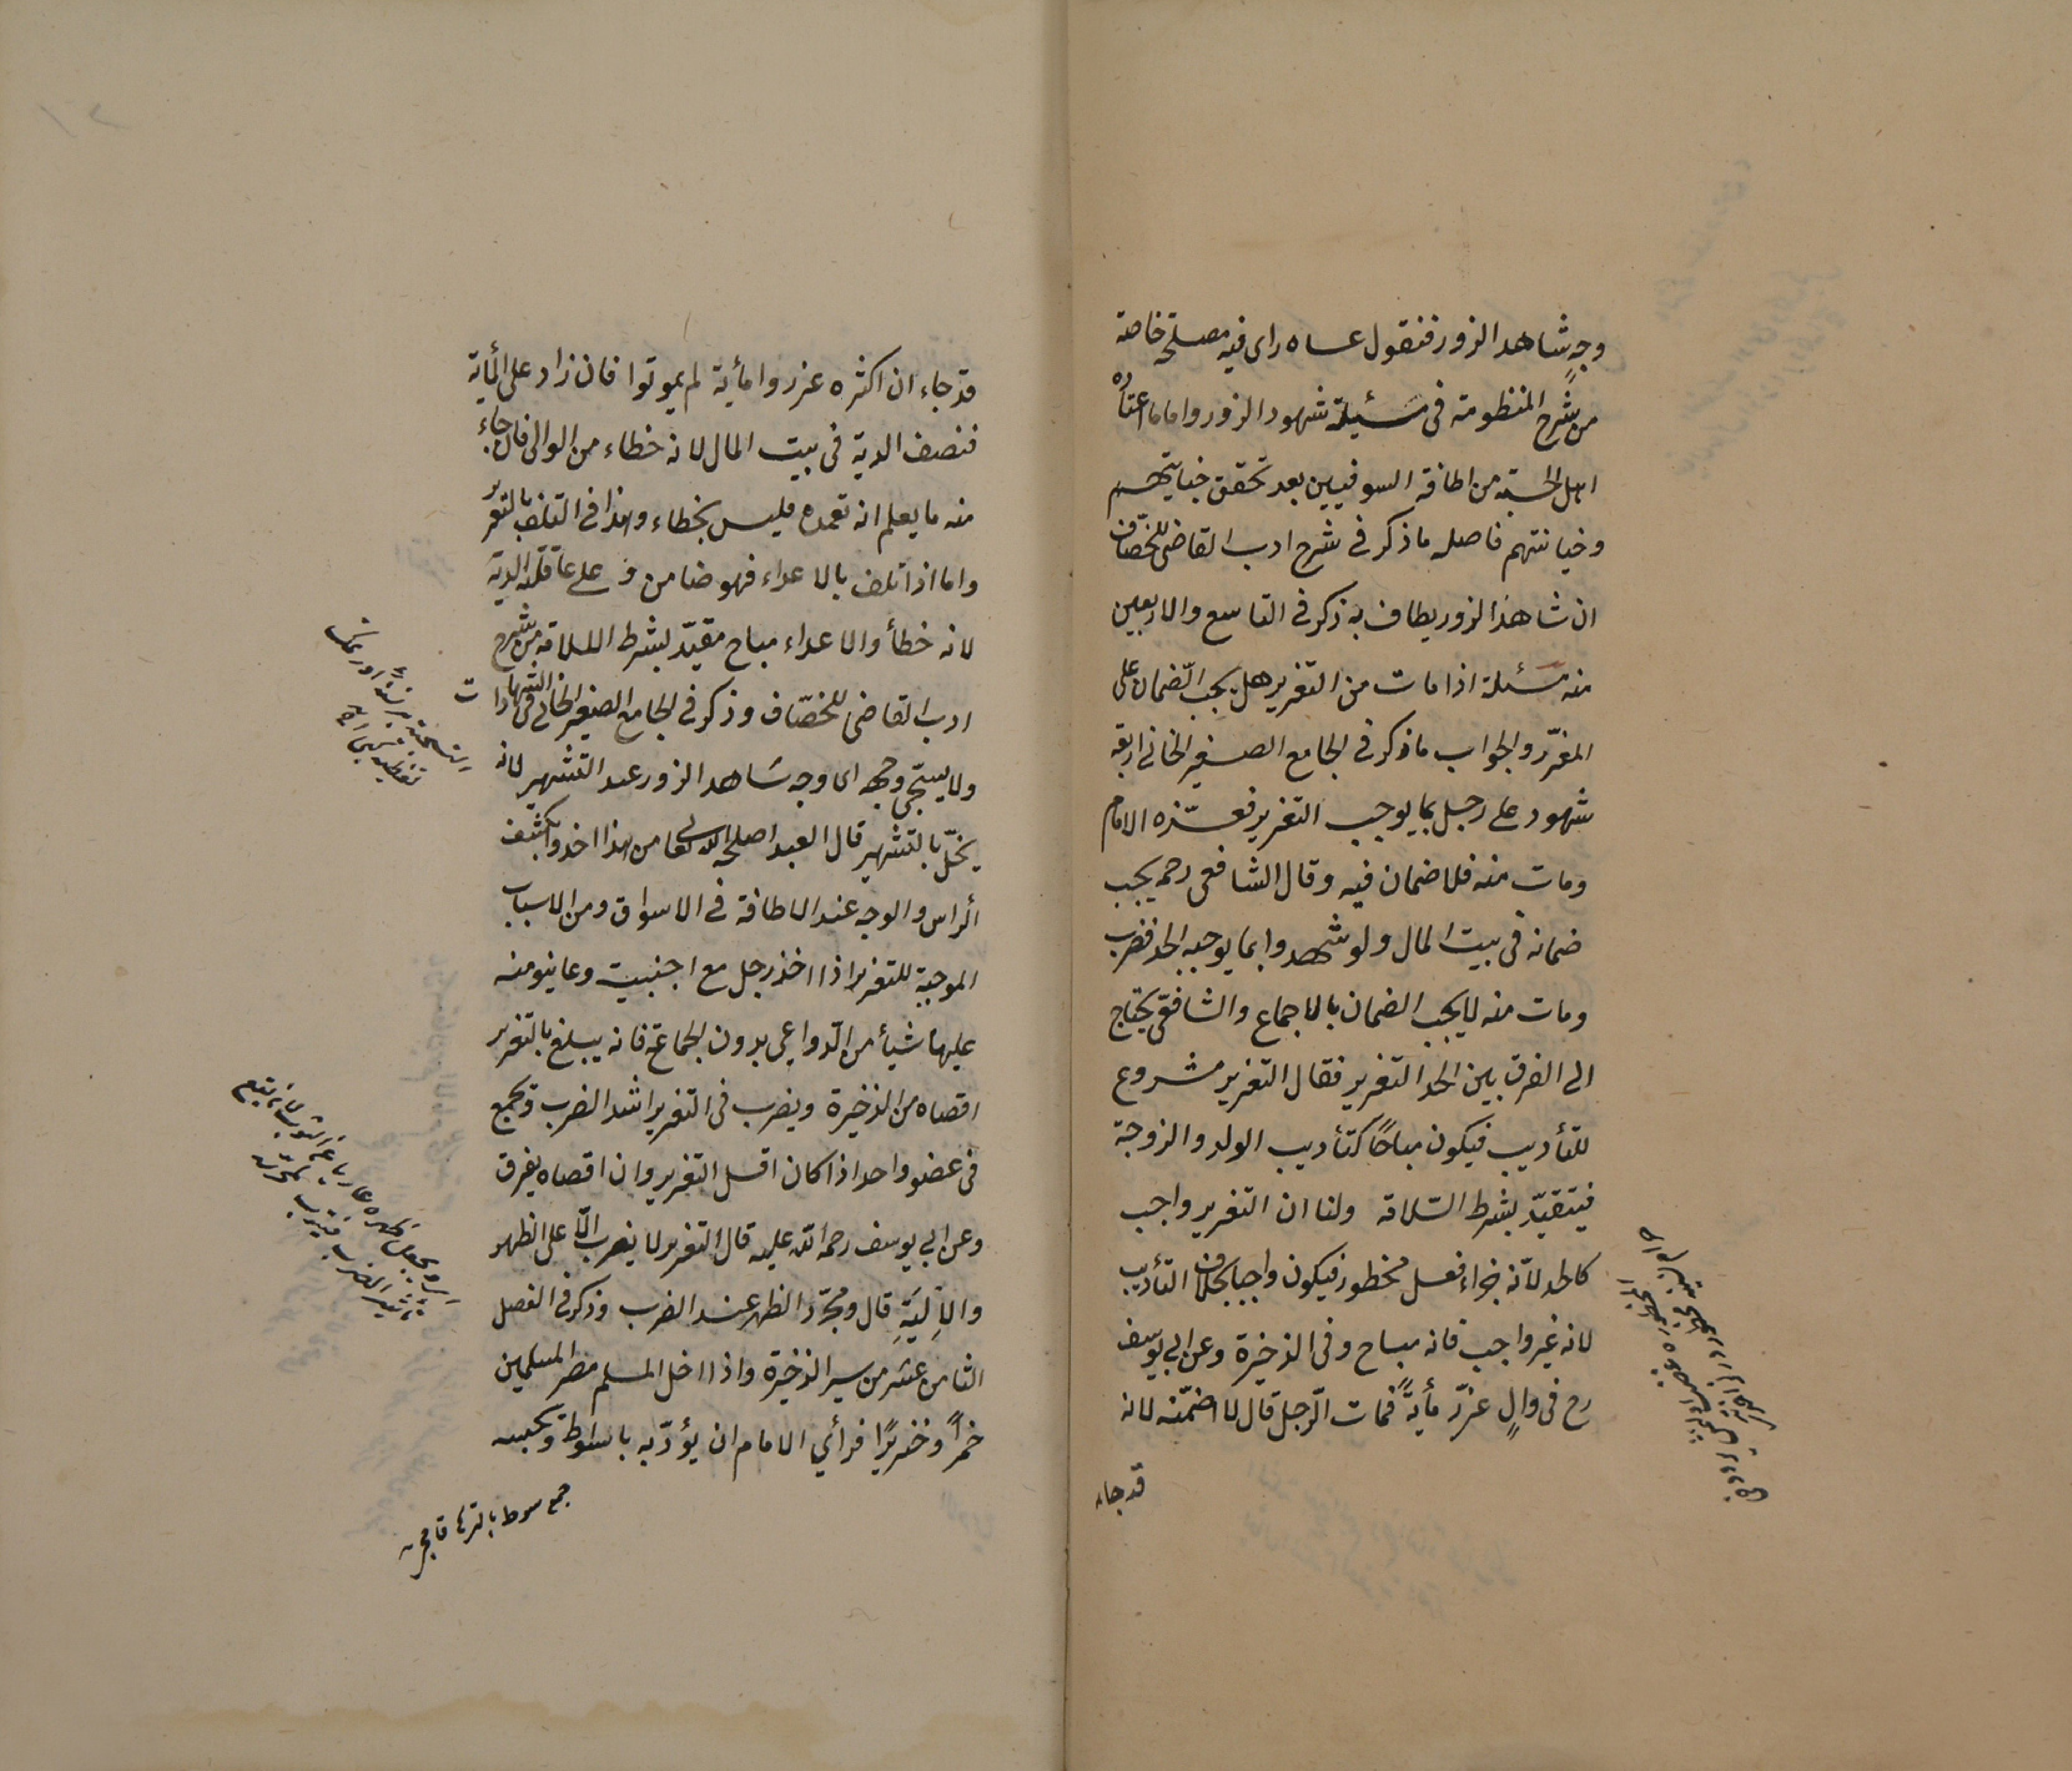 وجهِ شاهد الزور فنقول عساه راى فيه مصلحة خاصة
من شرح المنظومة فى مسئيلة شهود الزور واما ما اعتاده
اهل الحسبة من اطافة السوقيين بعد تحقق خيانتهم
وخيانتهم فاصله ما ذكر فى شرح ادب القاضى للخصّاف
ان شاهد الزور يطاف به ذكر فى التاسع والاربعين
منه مسئلة اذا مات من التعزير هل يجب الضمان على
المعزّر والجواب ما ذكر فى الجامع الصغير الخانى اربعة
شهود على رجل بما يوجب التعزير فعزّره الامام
ومات منه فلا ضمان فيه وقال الشافعى رحمه يجب
ضمانه فى بيت المال ولو شهدوا بما يوجبه الحد فضرب
ومات منه لا يجب الضمان بالاجماع والشافعى يحتاج
الى الفرق بين الحد التعزير فقال التعزير مشروع
للتأديب فيكون مباحًا كتأديب الولد والزوجة
فيتقيّد بشرط السّلامة ولنا ان التعزير واجب
كالحد لانّه جزاء فعل محظور فيكون واجبا بخلاف التأديب
لانه غير واجب فانه مباح وفى الذخيرة وعن ابى يوسف
رح فى والٍ عزّر مأيةً فمات الرّجل قال لا اضمّنه لانه
قد جاء
قد جاء ان اكثره عزروا مأية لم يموتوا فان زاد على المأية
فنصف الدية فى بيت المال لانه خطاء من الوالى فان جاء
منه ما يعلم انه تعمده فليس بخطاء وهذا فى التلف بالتعزير
واما اذا تلف بالاعداء فهو ضامن و على عاقلته الدية
لانه خطأ والاعداء مباح مقيّد بشرط السلامة من شرح
ادب القاضى للخصّاف وذكر فى الجامع الصغير الخانى فى الشهادات
ولا يستحى وجهه اى وجه شاهد الزور عند التشهير لانه
يخلّ بالتشهير قال العبد اصلحه الله تعالى من هذا اخذوا كشف
الراس والوجه عند الاطافة فى الاسواق ومن الاسباب
الموجبة للتعزير اذا اخذ رجل مع اجنبية وعاينو منه
عليها شيأ من الدّواعى بدون الجماع فانه يبلغ بالتعزير
اقصاه من الذخيرة ويضرب فى التعزير اشد الضرب وتجمع
فى عضو واحد اذا كان اقل التعزير وان اقصاه يفرق
وعن ابى يوسف رحمه الله عليه قال التعزير لا يضرب الّا على الظهر
والاَليَةِ قال ومجرّد الظهر عند الضرب وذكر فى الفصل
الثامن عشر من سير الذخيرة واذا ادخل المسلم مصر المسلمين
خمراً وخنزيرًا فرأى الامام ان يؤدّبه باسواط ويحبسه
جمع سوط بالتركى قامجى